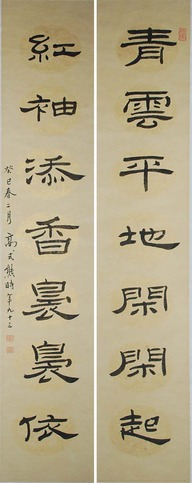 青雲平地閑閑起
紅袖添香裊裊依
癸巳春二月 高式熊時年九十三